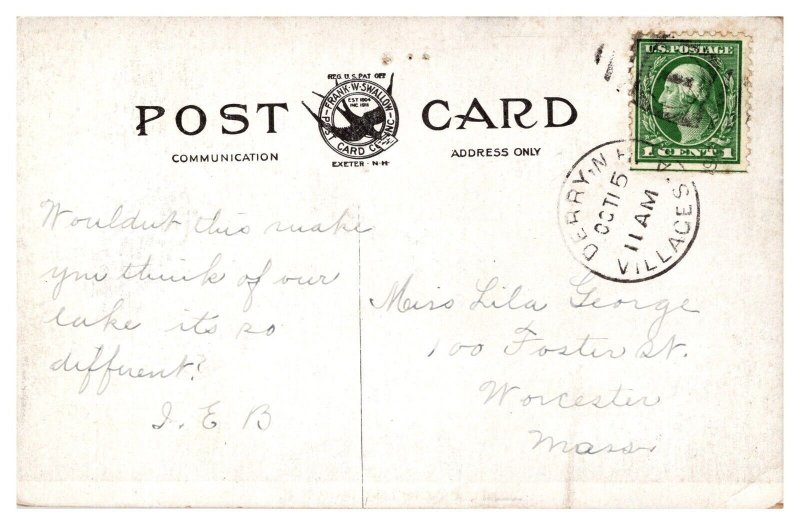 REG. U.S. PAT OFF
FRANK·W·SWALLOW
EST 1904
INC 1911
POST CARD CO. INC
EXETER - N·H
POST CARD
COMMUNICATION
ADDRESS ONLY
U.S. POSTAGE
1 CENT 1
DERRY, N.H.
OCT 15
11 AM
VILLAGES
Wouldnt this make
you think of our
lake its so
different?
I. E B
Miss Lila George
100 Foster St.
Worcester
Mass